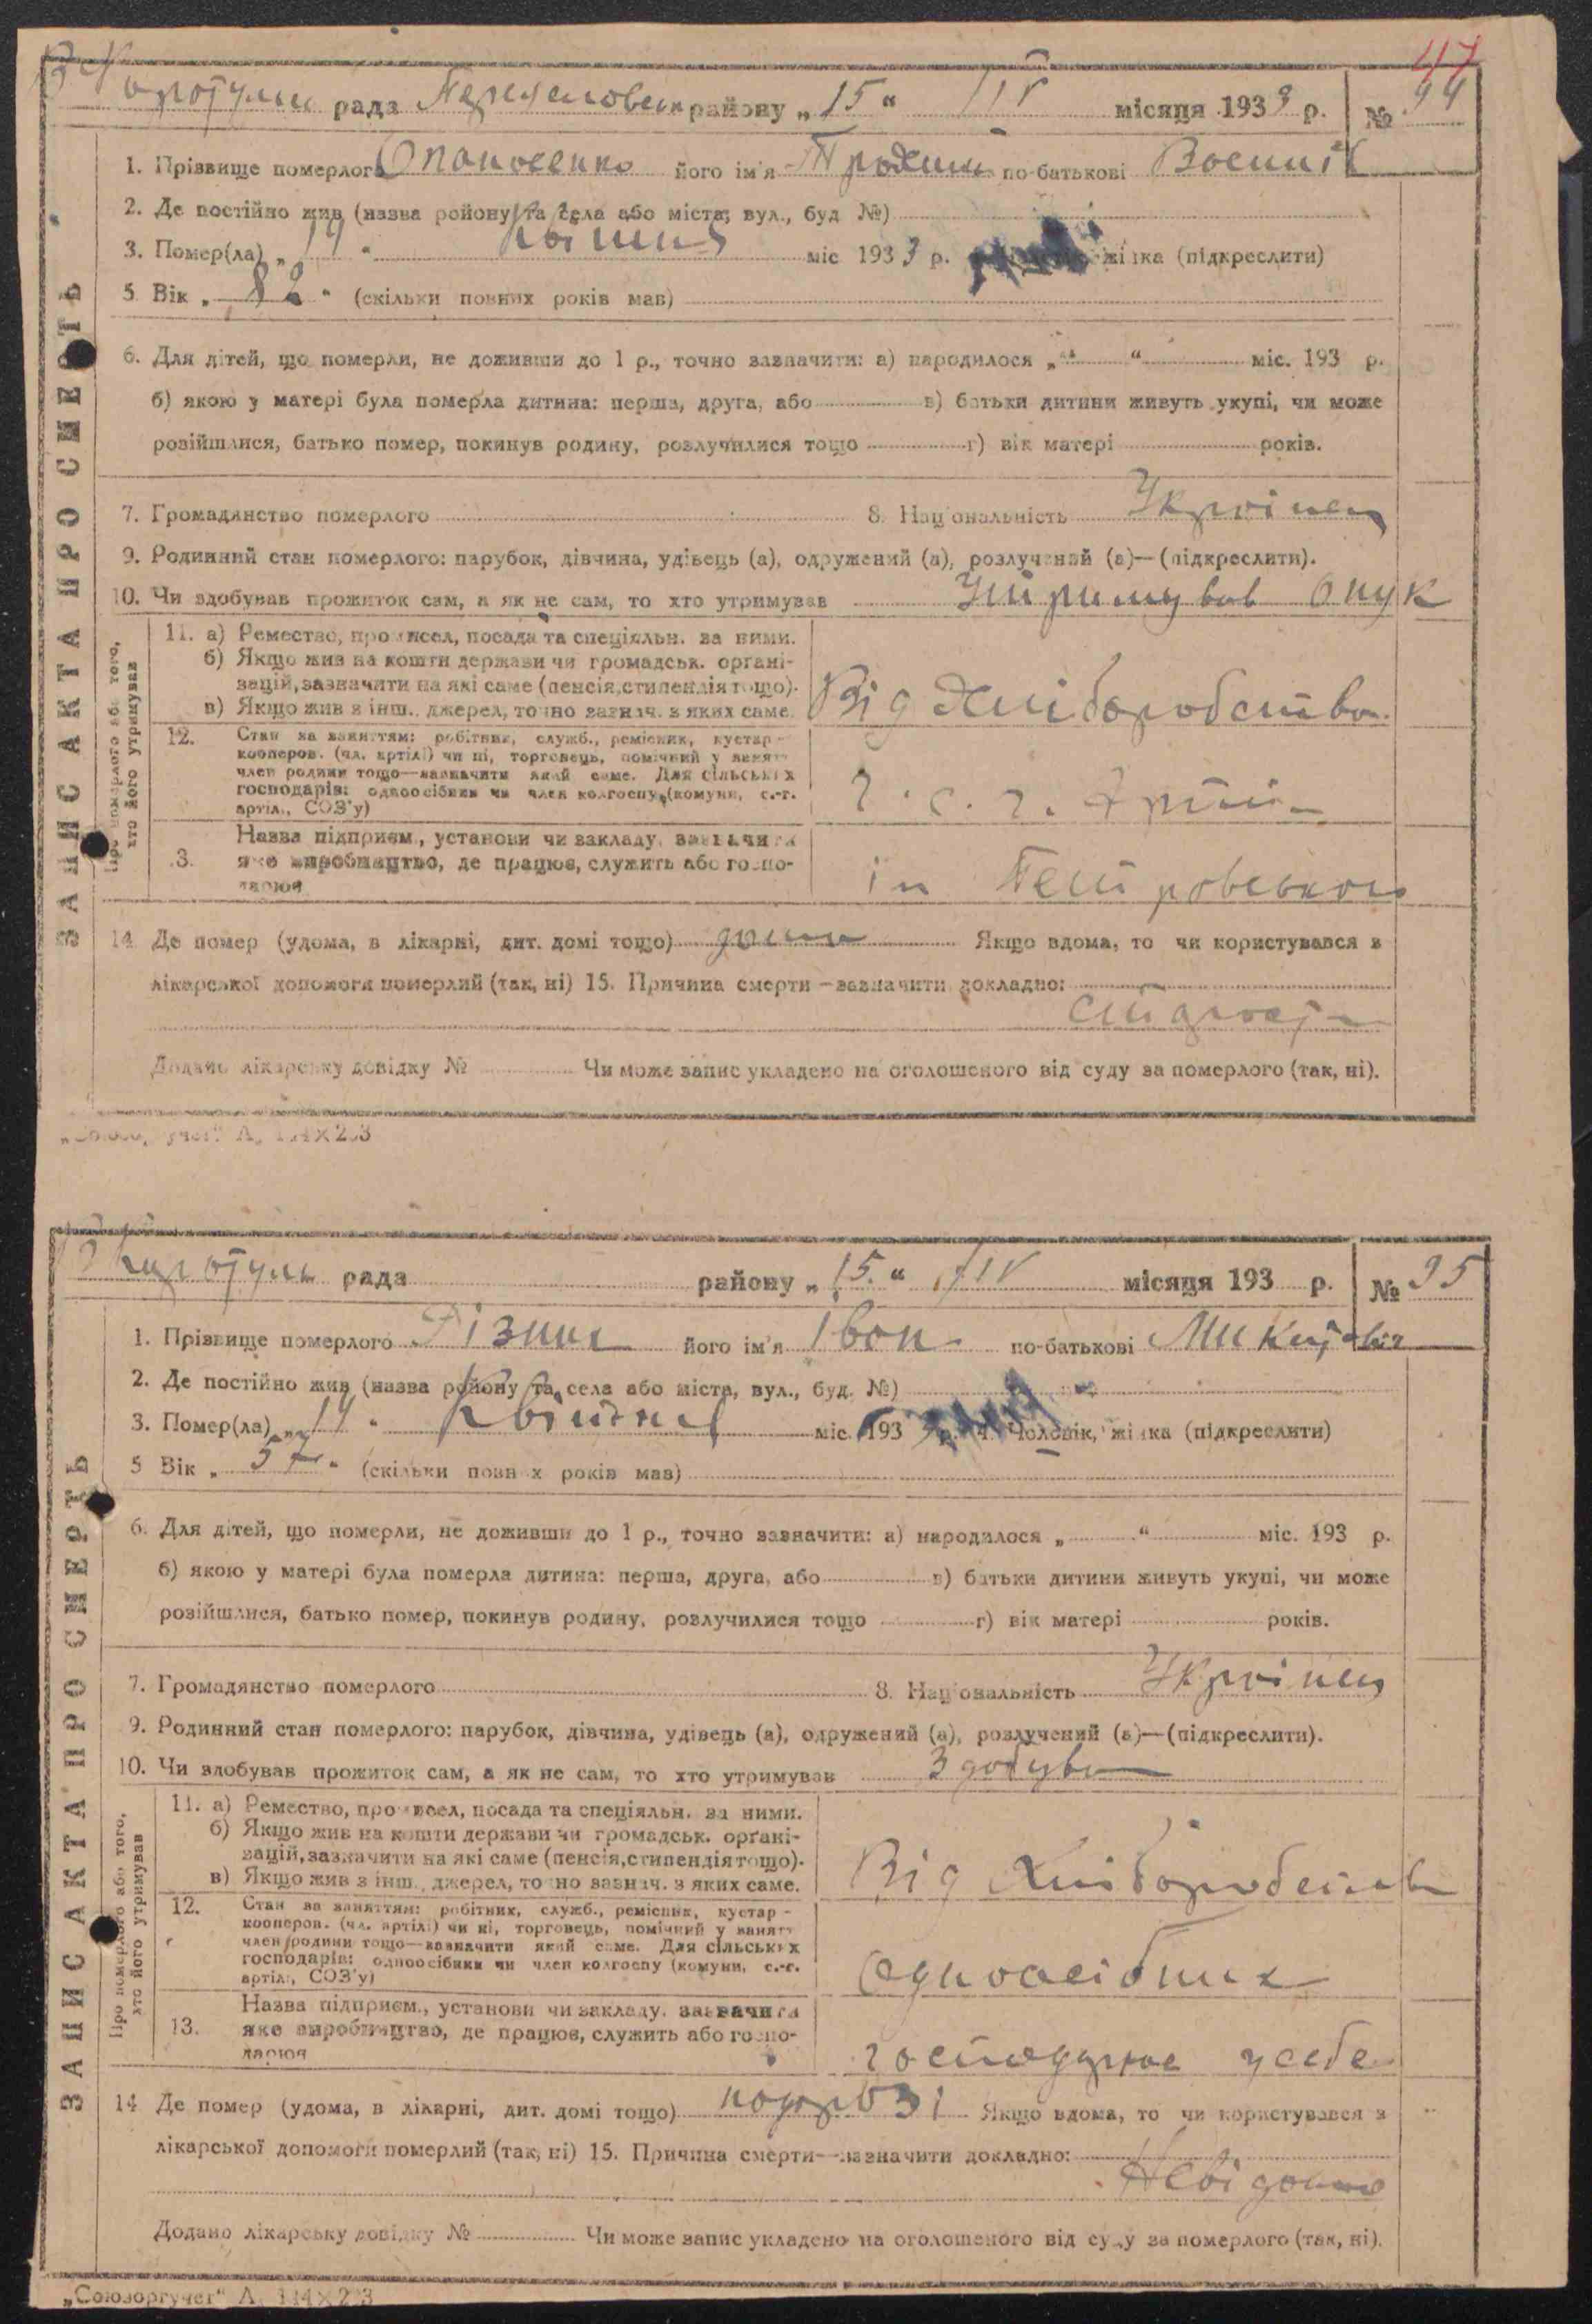 47
В Каротуль рада Переяславськ району „15“ IV місяця 1933 р. № 94
1. Прізвище померлого Опанасенко його ім'я Трохим по-батькові
2. Де постійно жив (назва району та села або міста, вул., буд №)
3. Помер(ла) „14“ Квітня міс 1933 р. жінка (підкреслити)
5 Вік „82“ (скільки повних років мав)
6. Для дітей, що померли, не доживши до 1 р., точно зазначити: а) народилося „ “ міс. 193 р.
б) якою у матері була померла дитина: перша, друга, або в) батьки дитини живуть укупі, чи може
розійшлися, батько помер, покинув родину, розлучилися тощо г) вік матері років.
7. Громадянство померлого 8. Національність Українец
9. Родинний стан померлого: парубок, дівчина, удівець (а), одружений (а), розлучений (а)—(підкреслити).
10. Чи здобував прожиток сам, а як не сам, то хто утримував Утримував Онук
ЗАПИС АКТА ПРО СМЕРТЬ
Про померлого або того,
хто його утримував
11. а) Ремество, промисел, посада та спеціяльн. за ними.
б) Якщо жив на кошти держави чи громадськ. органі-
зацій, зазначити на які саме (пенсія, стипендія тощо).
в) Якщо жив з інш. джерел, точно зазнач. з яких саме.
Від Хліборобства
12. Стан за заняттям: робітник, служб., ремісник, кустар-
кооперов. (чл. артілі) чи ні, торговець, помічний у занят.
член родини тощо—зазначити який саме. Для сільських
господарів: одноосібник чи член колгоспу (комуни, с.-г.
артіл., СОЗ'у)
Ч. С. г. Артіл
13. Назва підприєм., установи чи закладу, зазначити
яке виробництво, де працює, служить або госпо-
дарює
ім Петровського
14 Де помер (удома, в лікарні, дит. домі тощо) дома Якщо вдома, то чи користувався з
лікарської допомоги померлий (так, ні) 15. Причина смерти—зазначити докладно:
Старость
Додано лікарську довідку № Чи може запис укладено на оголошеного від суду за померлого (так, ні).
„Союзоргучет“ А, 144×203
В Каротуль рада району „15“ IV місяця 193 р. № 95
1. Прізвище померлого Різник його ім'я Іван по-батькові Микитович
2. Де постійно жив (назва району та села або міста, вул., буд. №)
3. Помер(ла) „14“ Квітня міс. 193 р. 4. Чоловік, жінка (підкреслити)
5 Вік „57“ (скільки повних років мав)
6. Для дітей, що померли, не доживши до 1 р., точно зазначити: а) народилося „ “ міс. 193 р.
б) якою у матері була померла дитина: перша, друга, або в) батьки дитини живуть укупі, чи може
розійшлися, батько помер, покинув родину, розлучилися тощо г) вік матері років.
7. Громадянство померлого 8. Національність Українец
9. Родинний стан померлого: парубок, дівчина, удівець (а), одружений (а), розлучений (а)—(підкреслити).
10. Чи здобував прожиток сам, а як не сам, то хто утримував Здобував
ЗАПИС АКТА ПРО СМЕРТЬ
Про померлого або того,
хто його утримував
11. а) Ремество, промисел, посада та спеціяльн. за ними.
б) Якщо жив на кошти держави чи громадськ. органі-
зацій, зазначити на які саме (пенсія, стипендія тощо).
в) Якщо жив з інш. джерел, точно зазнач. з яких саме.
Від Хліборобства
12. Стан за заняттям: робітник, служб., ремісник, кустар-
кооперов. (чл. артілі) чи ні, торговець, помічний у занят.
член родини тощо—зазначити який саме. Для сільських
господарів: одноосібник чи член колгоспу (комуни, с.-г.
артіл., СОЗ'у)
Одноосібник
13. Назва підприєм., установи чи закладу, зазначити
яке виробництво, де працює, служить або госпо-
дарює
господарює усебе
14 Де помер (удома, в лікарні, дит. домі тощо) подорозі Якщо вдома, то чи користувався з
лікарської допомоги померлий (так, ні) 15. Причина смерти—зазначити докладно:
Невідомо
Додано лікарську довідку № Чи може запис укладено на оголошеного від суду за померлого (так, ні).
„Союзоргучет“ А, 144×203